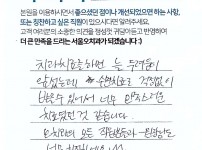 본원을 이용하시면서 좋으셨던 점이나 개선되었으면 하는 사항,
또는 칭찬하고 싶은 직원이 있으시다면 알려주세요.
고객 여러분의 소중한 의견을 정성껏 귀담아듣고 반영하여
더 큰 만족을 드리는 서울오치과가 되겠습니다 :)
치과치료를 하면 늘 두려움이
앞섰는데 수면치료로 걱정없이
받을수 있어서 너무 만족스러운
치료였던 것 같습니다.
모든 직원분들과 원장님도
너무